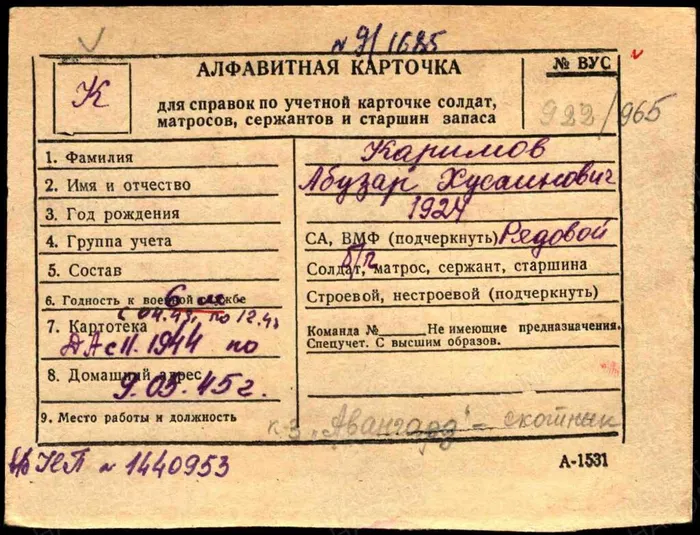 N 9/1685
К
АЛФАВИТНАЯ КАРТОЧКА
для справок по учетной карточке солдат,
матросов, сержантов и старшин запаса
№ ВУС
922/965
1. Фамилия
Каримов
2. Имя и отчество
Абузар Хусаинович
3. Год рождения
1924
4. Группа учета
СА, ВМФ (подчеркнуть) Рядовой
5. Состав
б/п
Солдат, матрос, сержант, старшина
6. Годность к военной службе
Строевой, нестроевой (подчеркнуть)
с 04.43г. по 12.43
7. Картотека
Команда №____ Не имеющие предназначения.
Спецучет. С высшим образов.
ДА с 11.1944 по
8. Домашний адрес
9.05.45г.
9. Место работы и должность
к-з „Авангард" – скотник
НП N 1440953
А-1531